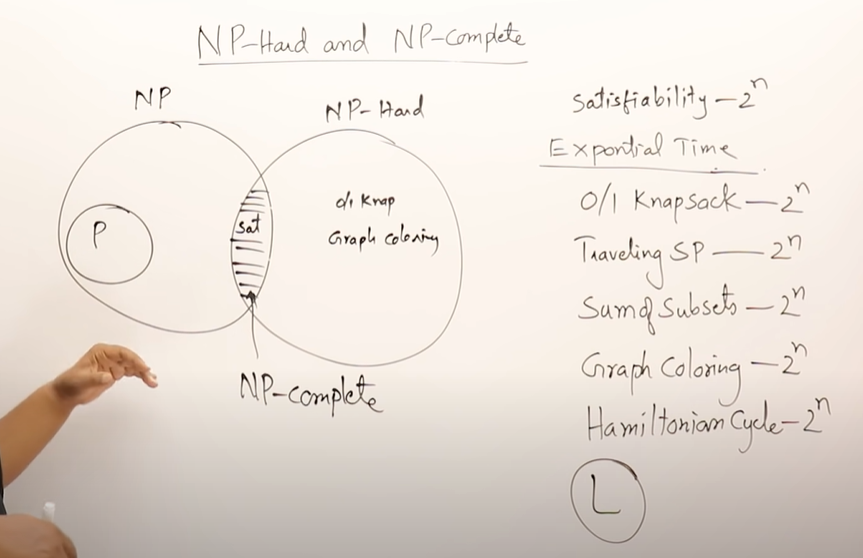 NP-Hard and NP-complete
NP
NP-Hard
P
Sat
0/1 Knap
Graph coloring
NP-complete
Satisfiability – 2ⁿ
Expontial Time
0/1 Knapsack – 2ⁿ
Traveling SP – 2ⁿ
Sum of Subsets – 2ⁿ
Graph Coloring – 2ⁿ
Hamiltonian Cycle – 2ⁿ
L